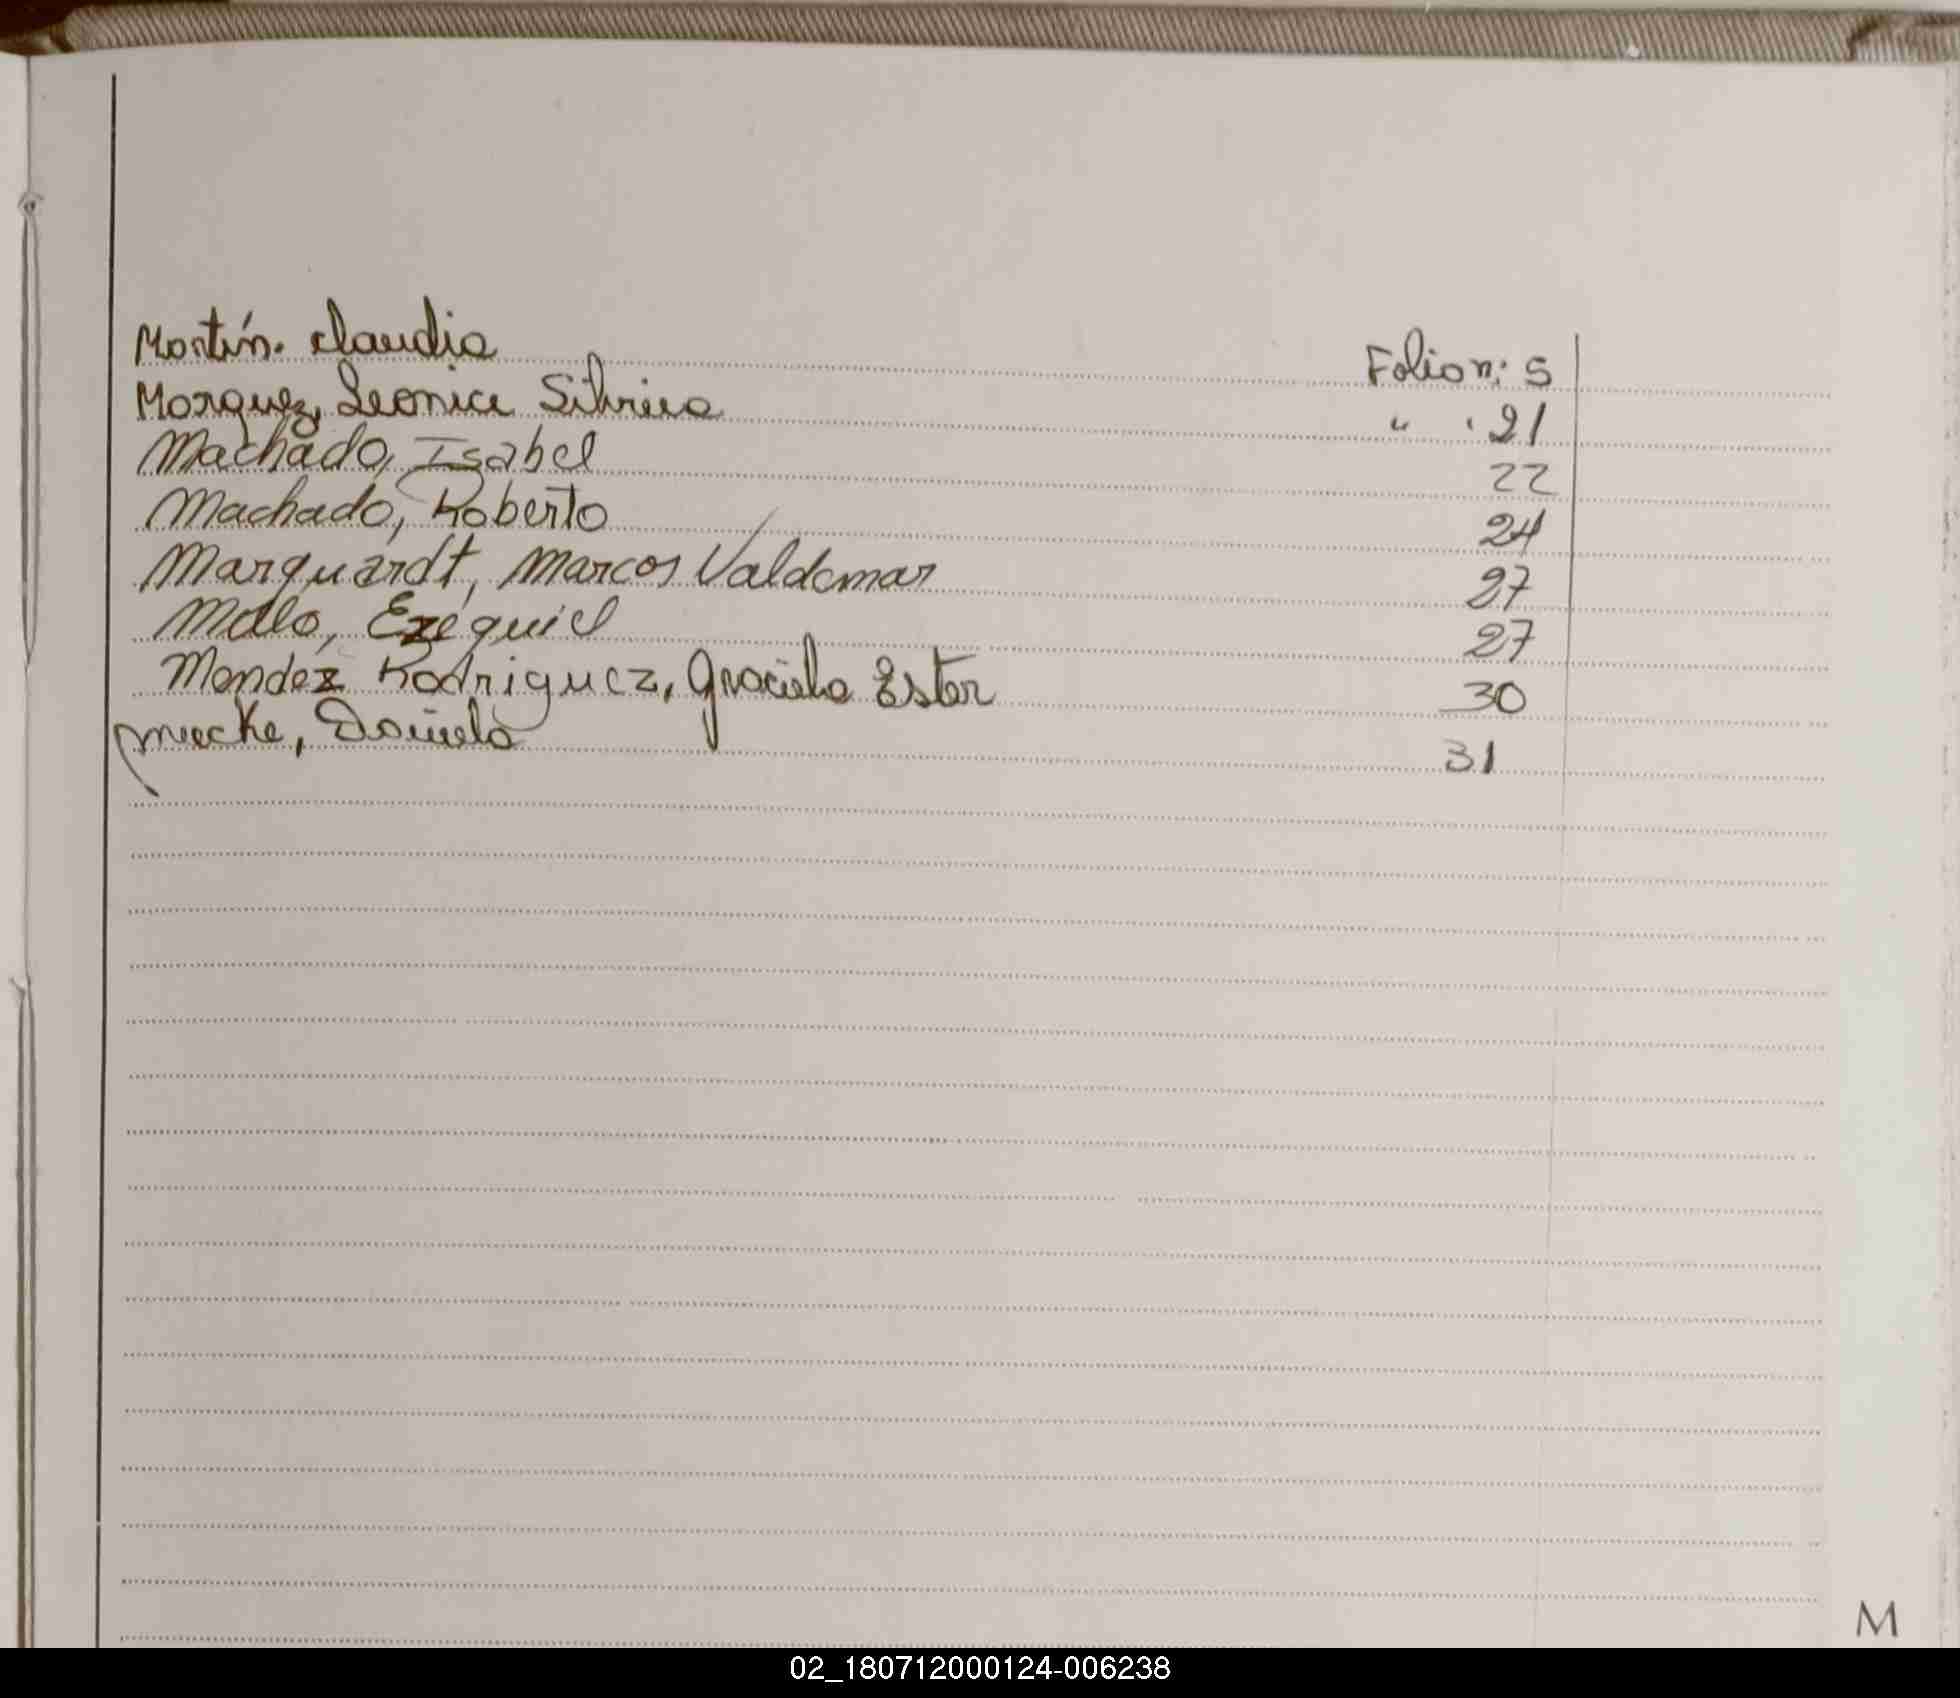 Martín. Claudia Folio n: 5
Marquez, Leonice Silveira " . 21
Machado, Isabel 22
Machado, Roberto 24
Marquardt, Marcos Valdemar 27
Mello, Ezequiel 27
Mendez Rodriguez, Graciela Ester 30
Daniela 31
M
02_180712000124-006238